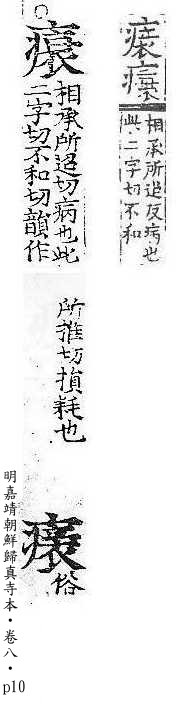 相承所追反病也
此二字切不和
相承所追切病也此
二字切不和切韻作
所推切損耗也
俗
明嘉靖朝鮮歸真寺本・卷八・p10